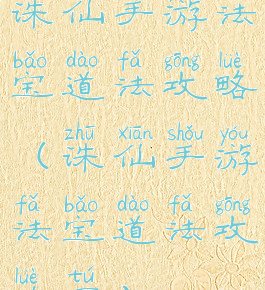 诛仙手游法
bǎo dào fǎ gōng lüè
宝道法攻略
zhū xiān shǒu yóu
（诛仙手游
fǎ bǎo dào fǎ gōng
法宝道法攻
lüè tú
略图）